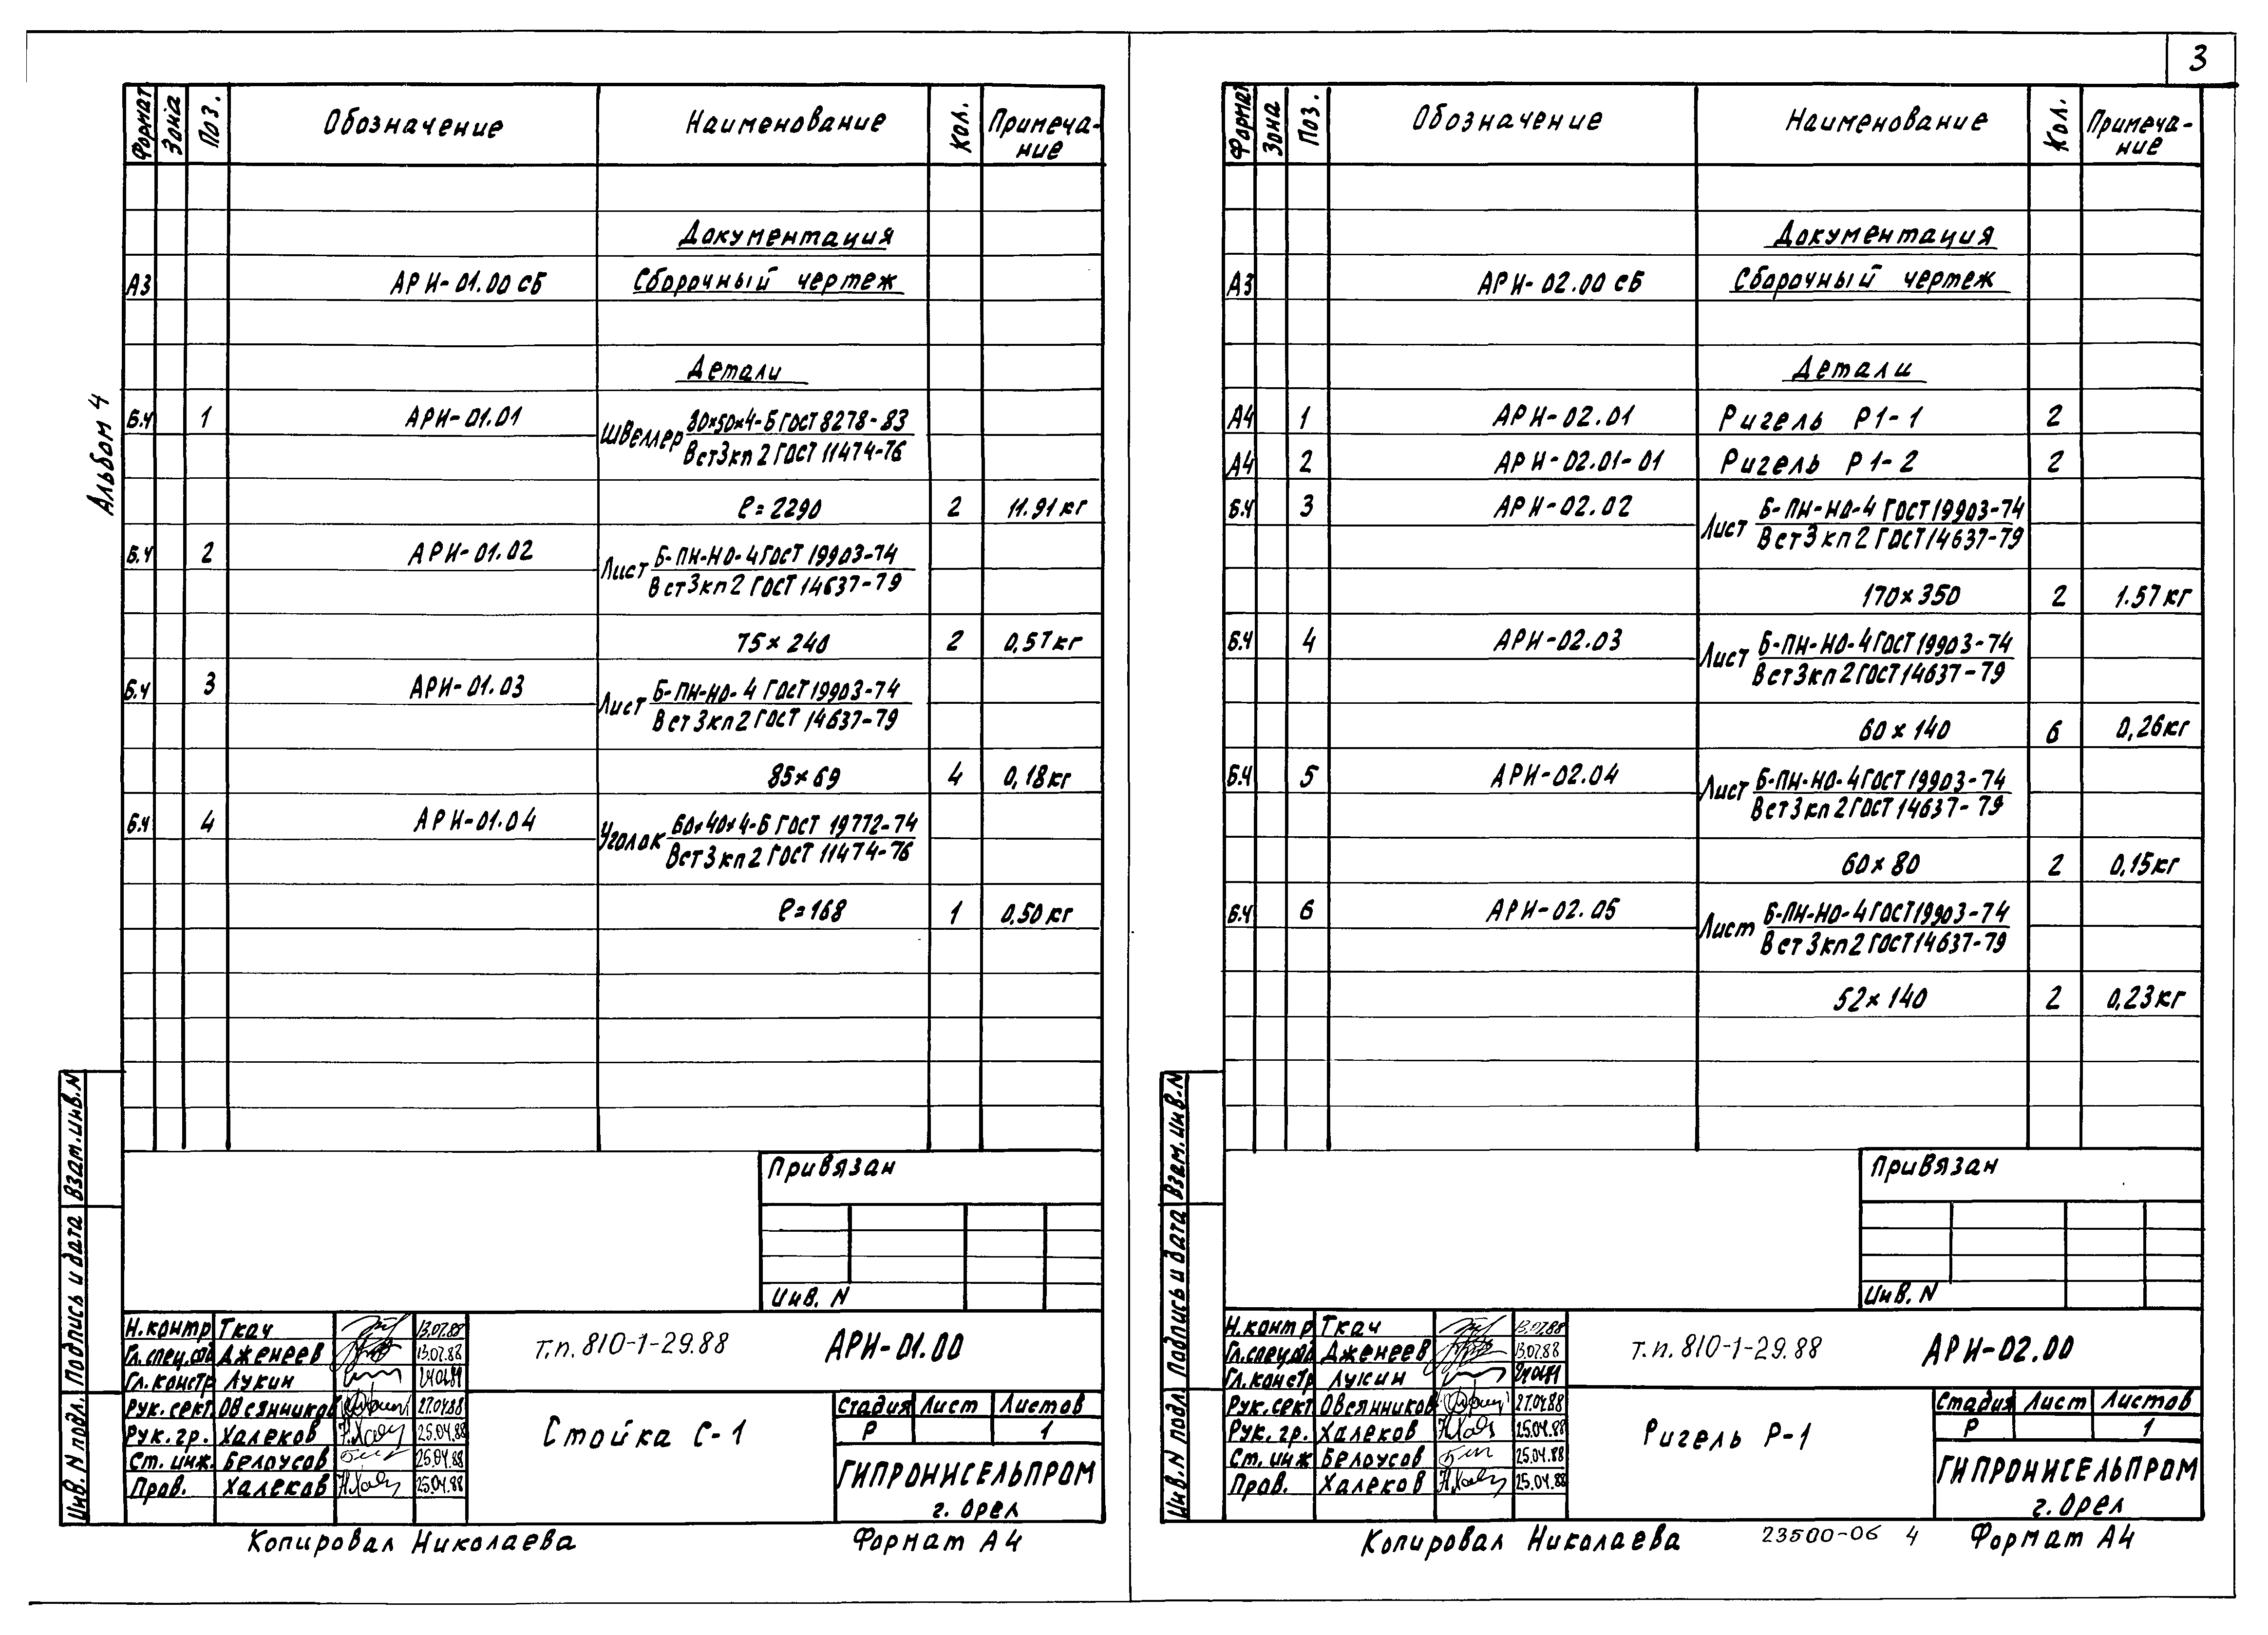 3
Альбом 4
Формат Зона Поз. Обозначение Наименование Кол. Примеча-
ние
Документация
А3 АРИ-01.00 СБ Сборочный чертеж
Детали
Б.Ч 1 АРИ-01.01 Швеллер 80×50×4-Б ГОСТ 8278-83
ВСт3кп2 ГОСТ 11474-76
ℓ=2290 2 11.91 кг
Б.Ч 2 АРИ-01.02 Лист Б-ПН-НО-4 ГОСТ 19903-74
ВСт3кп2 ГОСТ 14637-79
75×240 2 0,57 кг
Б.Ч 3 АРИ-01.03 Лист Б-ПН-НО-4 ГОСТ 19903-74
ВСт3кп2 ГОСТ 14637-79
85×69 4 0,18 кг
Б.Ч 4 АРИ-01.04 Уголок 60×40×4-Б ГОСТ 19772-74
ВСт3кп2 ГОСТ 11474-76
ℓ=168 1 0,50 кг
Привязан
Инв. N
Взам. инв. N
Подпись и дата
Инв. N подл.
Н.контр Ткач 13.07.88
Гл.спец. Дженеев 13.07.88
Гл.констр Лукин
Рук.сект. Овсянников 27.04.88
Рук.гр. Халеков 25.04.88
Ст. инж. Белоусов 25.04.88
Пров. Халеков 25.04.88
т.п. 810-1-29.88 АРИ-01.00
Стойка С-1
Стадия Лист Листов
Р 1
ГИПРОНИСЕЛЬПРОМ
г. Орел
Копировал Николаева Формат А4
Формат Зона Поз. Обозначение Наименование Кол. Примеча-
ние
Документация
А3 АРИ-02.00 СБ Сборочный чертеж
Детали
А4 1 АРИ-02.01 Ригель Р1-1 2
А4 2 АРИ-02.01-01 Ригель Р1-2 2
Б.Ч 3 АРИ-02.02 Лист Б-ПН-НО-4 ГОСТ 19903-74
ВСт3кп2 ГОСТ 14637-79
170×350 2 1.57 кг
Б.Ч 4 АРИ-02.03 Лист Б-ПН-НО-4 ГОСТ 19903-74
ВСт3кп2 ГОСТ 14637-79
60×140 6 0,26 кг
Б.Ч 5 АРИ-02.04 Лист Б-ПН-НО-4 ГОСТ 19903-74
ВСт3кп2 ГОСТ 14637-79
60×80 2 0,15 кг
Б.Ч 6 АРИ-02.05 Лист Б-ПН-НО-4 ГОСТ 19903-74
ВСт3кп2 ГОСТ 14637-79
52×140 2 0,23 кг
Привязан
Инв. N
Взам. инв. N
Подпись и дата
Инв. N подл.
Н.контр Ткач 13.07.88
Гл.спец. Дженеев 13.07.88
Гл.констр Лукин
Рук.сект Овсянников 27.04.88
Рук.гр. Халеков 25.04.88
Ст. инж Белоусов 25.04.88
Пров. Халеков 25.04.88
т.п. 810-1-29.88 АРИ-02.00
Ригель Р-1
Стадия Лист Листов
Р 1
ГИПРОНИСЕЛЬПРОМ
г. Орел
Копировал Николаева 23500-06 4 Формат А4